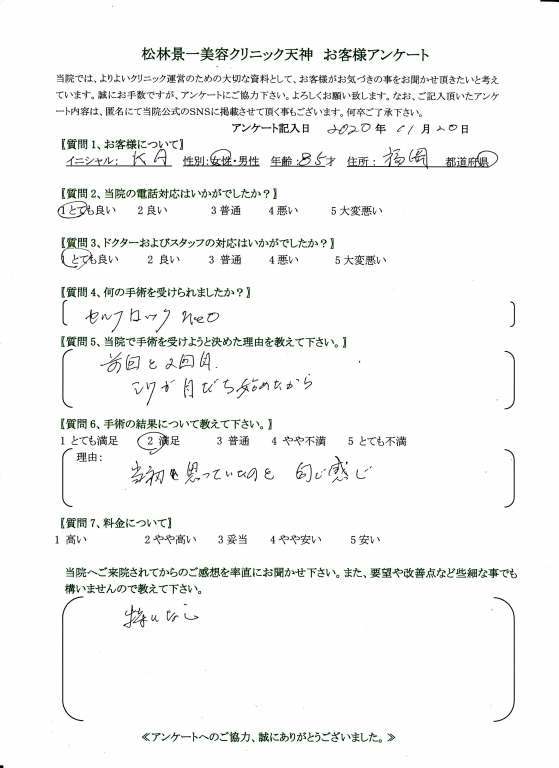 松林景一美容クリニック天神　お客様アンケート
当院では、よりよいクリニック運営のための大切な資料として、お客様がお気づきの事をお聞かせ頂きたいと考え
ています。誠にお手数ですが、アンケートにご協力下さい。よろしくお願い致します。なお、ご記入頂いたアンケ
ート内容は、匿名にて当院公式のSNSに掲載させて頂く事もございます。何卒ご了承下さい。
アンケート記入日　2020年 11月 20日
【質問1、お客様について】
イニシャル： KA　性別：女性・男性　年齢：85才　住所：福岡　都道府県
【質問2、当院の電話対応はいかがでしたか？】
1 とても良い　2 良い　3 普通　4 悪い　5 大変悪い
【質問3、ドクターおよびスタッフの対応はいかがでしたか？】
1 とても良い　2 良い　3 普通　4 悪い　5 大変悪い
【質問4、何の手術を受けられましたか？】
セルフロック neo
【質問5、当院で手術を受けようと決めた理由を教えて下さい。】
前回と2回目.
が目だち始めたから
【質問6、手術の結果について教えて下さい。】
1 とても満足　2 満足　3 普通　4 やや不満　5 とても不満
理由：
当初 思っていたのと 同じ感じ
【質問7、料金について】
1 高い　2 やや高い　3 妥当　4 やや安い　5 安い
当院へご来院されてからのご感想を率直にお聞かせ下さい。また、要望や改善点など些細な事でも
構いませんので教えて下さい。
特になし
≪アンケートへのご協力、誠にありがとうございました。≫